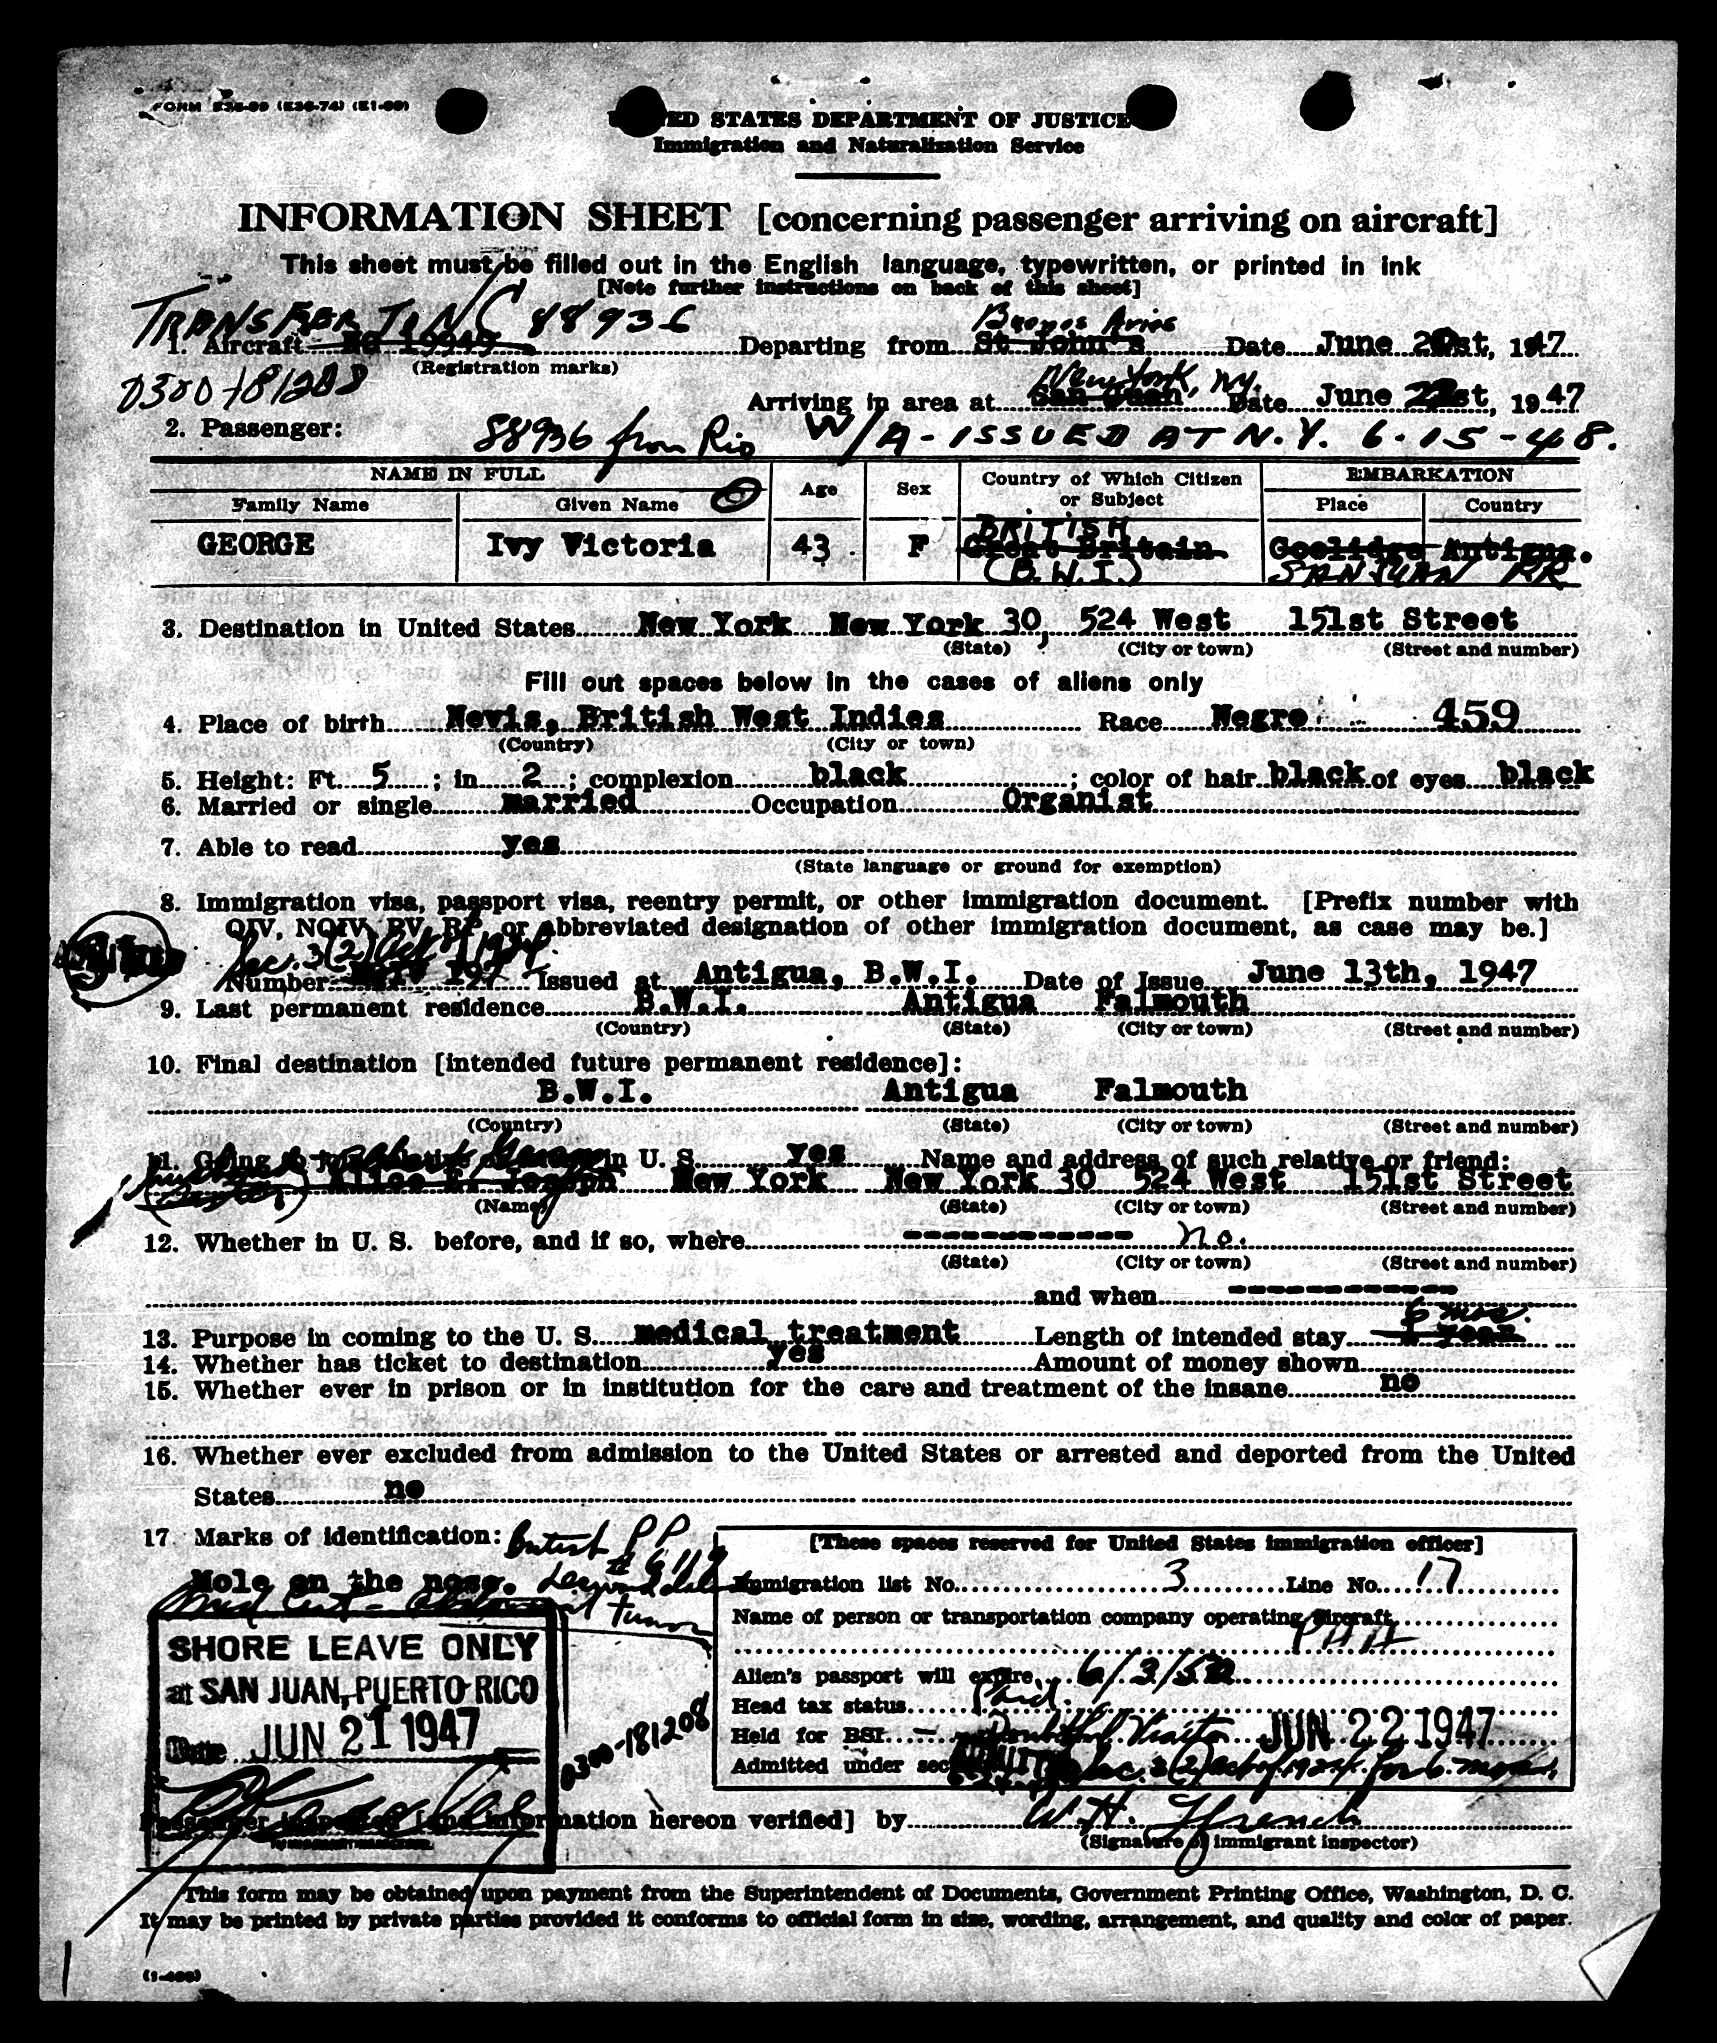 FORM (E36-74) (E1-69)
UNITED STATES DEPARTMENT OF JUSTICE
Immigration and Naturalization Service
INFORMATION SHEET [concerning passenger arriving on aircraft]
This sheet must be filled out in the English language, typewritten, or printed in ink
[Note further instructions on back of this sheet]
TRANSFER TO NC 88936 Buenos Aires
1. Aircraft NC 19949 Departing from St John's Date June 21st, 1947
(Registration marks)
0300-181208 New York, NY.
Arriving in area at San Juan Date June 22st, 1947
2. Passenger: 88936 from Rio W/A - ISSUED AT N.Y. 6-15-48.
NAME IN FULL Age Sex Country of Which Citizen or Subject EMBARKATION
Family Name Given Name Place Country
BRITISH
GEORGE Ivy Victoria 43 F Great Britain Coolidge Antigua.
(B.W.I.) SAN JUAN PR
3. Destination in United States New York New York 30, 524 West 151st Street
(State) (City or town) (Street and number)
Fill out spaces below in the cases of aliens only
4. Place of birth Nevis, British West Indies Race Negro 459
(Country) (City or town)
5. Height: Ft. 5 ; in. 2 ; complexion black ; color of hair black of eyes black
6. Married or single married Occupation Organist
7. Able to read yes
(State language or ground for exemption)
8. Immigration visa, passport visa, reentry permit, or other immigration document. [Prefix number with
QIV, NQIV, PV, RP, or abbreviated designation of other immigration document, as case may be.]
Sec. 3(2) Act of 1924
Number Issued at Antigua, B.W.I. Date of Issue June 13th, 1947
9. Last permanent residence B.W.I. Antigua Falmouth
(Country) (State) (City or town) (Street and number)
10. Final destination [intended future permanent residence]:
B.W.I. Antigua Falmouth
(Country) (State) (City or town) (Street and number)
11. Going to join relative in U. S. yes Name and address of such relative or friend:
Alice E. Joseph New York New York 30 524 West 151st Street
(Name) (State) (City or town) (Street and number)
12. Whether in U. S. before, and if so, where no.
(State) (City or town) (Street and number)
and when
6 mos.
13. Purpose in coming to the U. S. medical treatment Length of intended stay 1 year
14. Whether has ticket to destination yes Amount of money shown
15. Whether ever in prison or in institution for the care and treatment of the insane no
16. Whether ever excluded from admission to the United States or arrested and deported from the United
States no
17 Marks of identification: British PP
# 6119
Mole on the nose.
Med Cert - Abdominal Tumor
[These spaces reserved for United States immigration officer]
Immigration list No. 3 Line No. 17
Name of person or transportation company operating aircraft
PAA
Alien's passport will expire 6/3/52
Head tax status Paid.
Held for BSI Doubtful Visitor JUN 22 1947
Admitted under sec. 3(2) act of 1924 for 6 mos.
SHORE LEAVE ONLY
at SAN JUAN, PUERTO RICO
Date JUN 21 1947
0300-181208
Passenger inspected [and information hereon verified] by W. H. Ffrench
(Signature of immigrant inspector)
This form may be obtained upon payment from the Superintendent of Documents, Government Printing Office, Washington, D. C.
It may be printed by private parties provided it conforms to official form in size, wording, arrangement, and quality and color of paper.